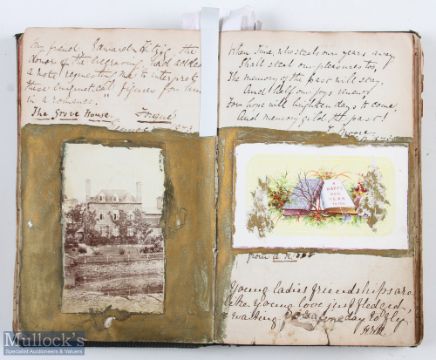 My friend, Edward the
donor of the engraving, had added
a note requesting me to interpret
these enigmatical figures for him
in a romance."
The Grove House.
When Time, who steals our years away
Shall steal our pleasures too,
The memory of the past will stay,
And half our joys renew
For hope will brighten days to come,
And memory gild the past!
T. Moore
A
HAPPY
NEW
YEAR
from a
Young ladies friendships are
like young love just fledged,
Mullock's
Specialist Auctioneers & Valuers